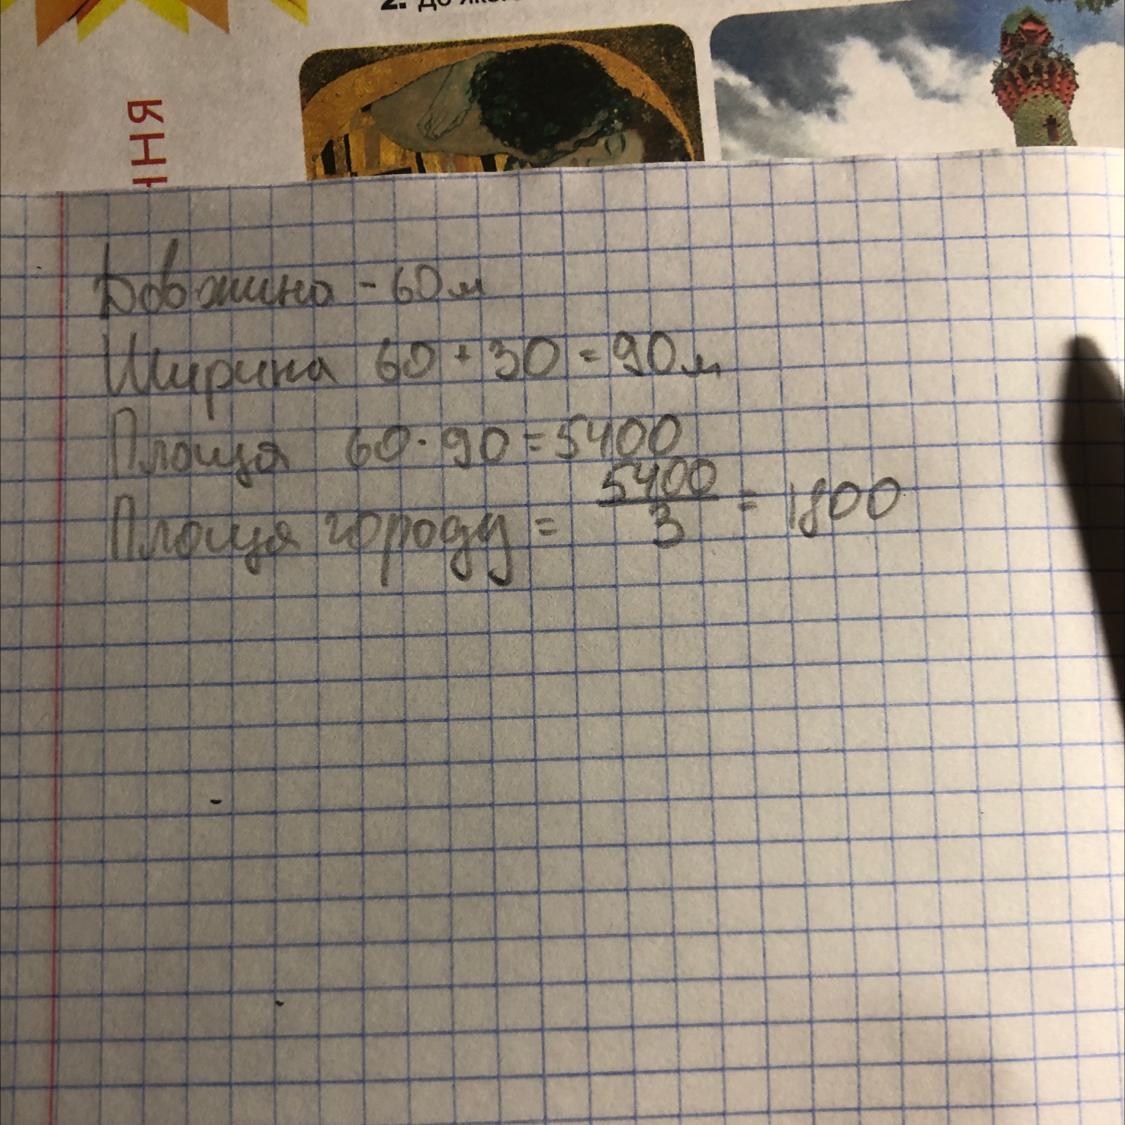 2. До яко
ння
Довжина - 60м
Ширина 60 + 30 = 90м
Площа 60 · 90 = 5400
Площа городу = 5400/3 = 1800